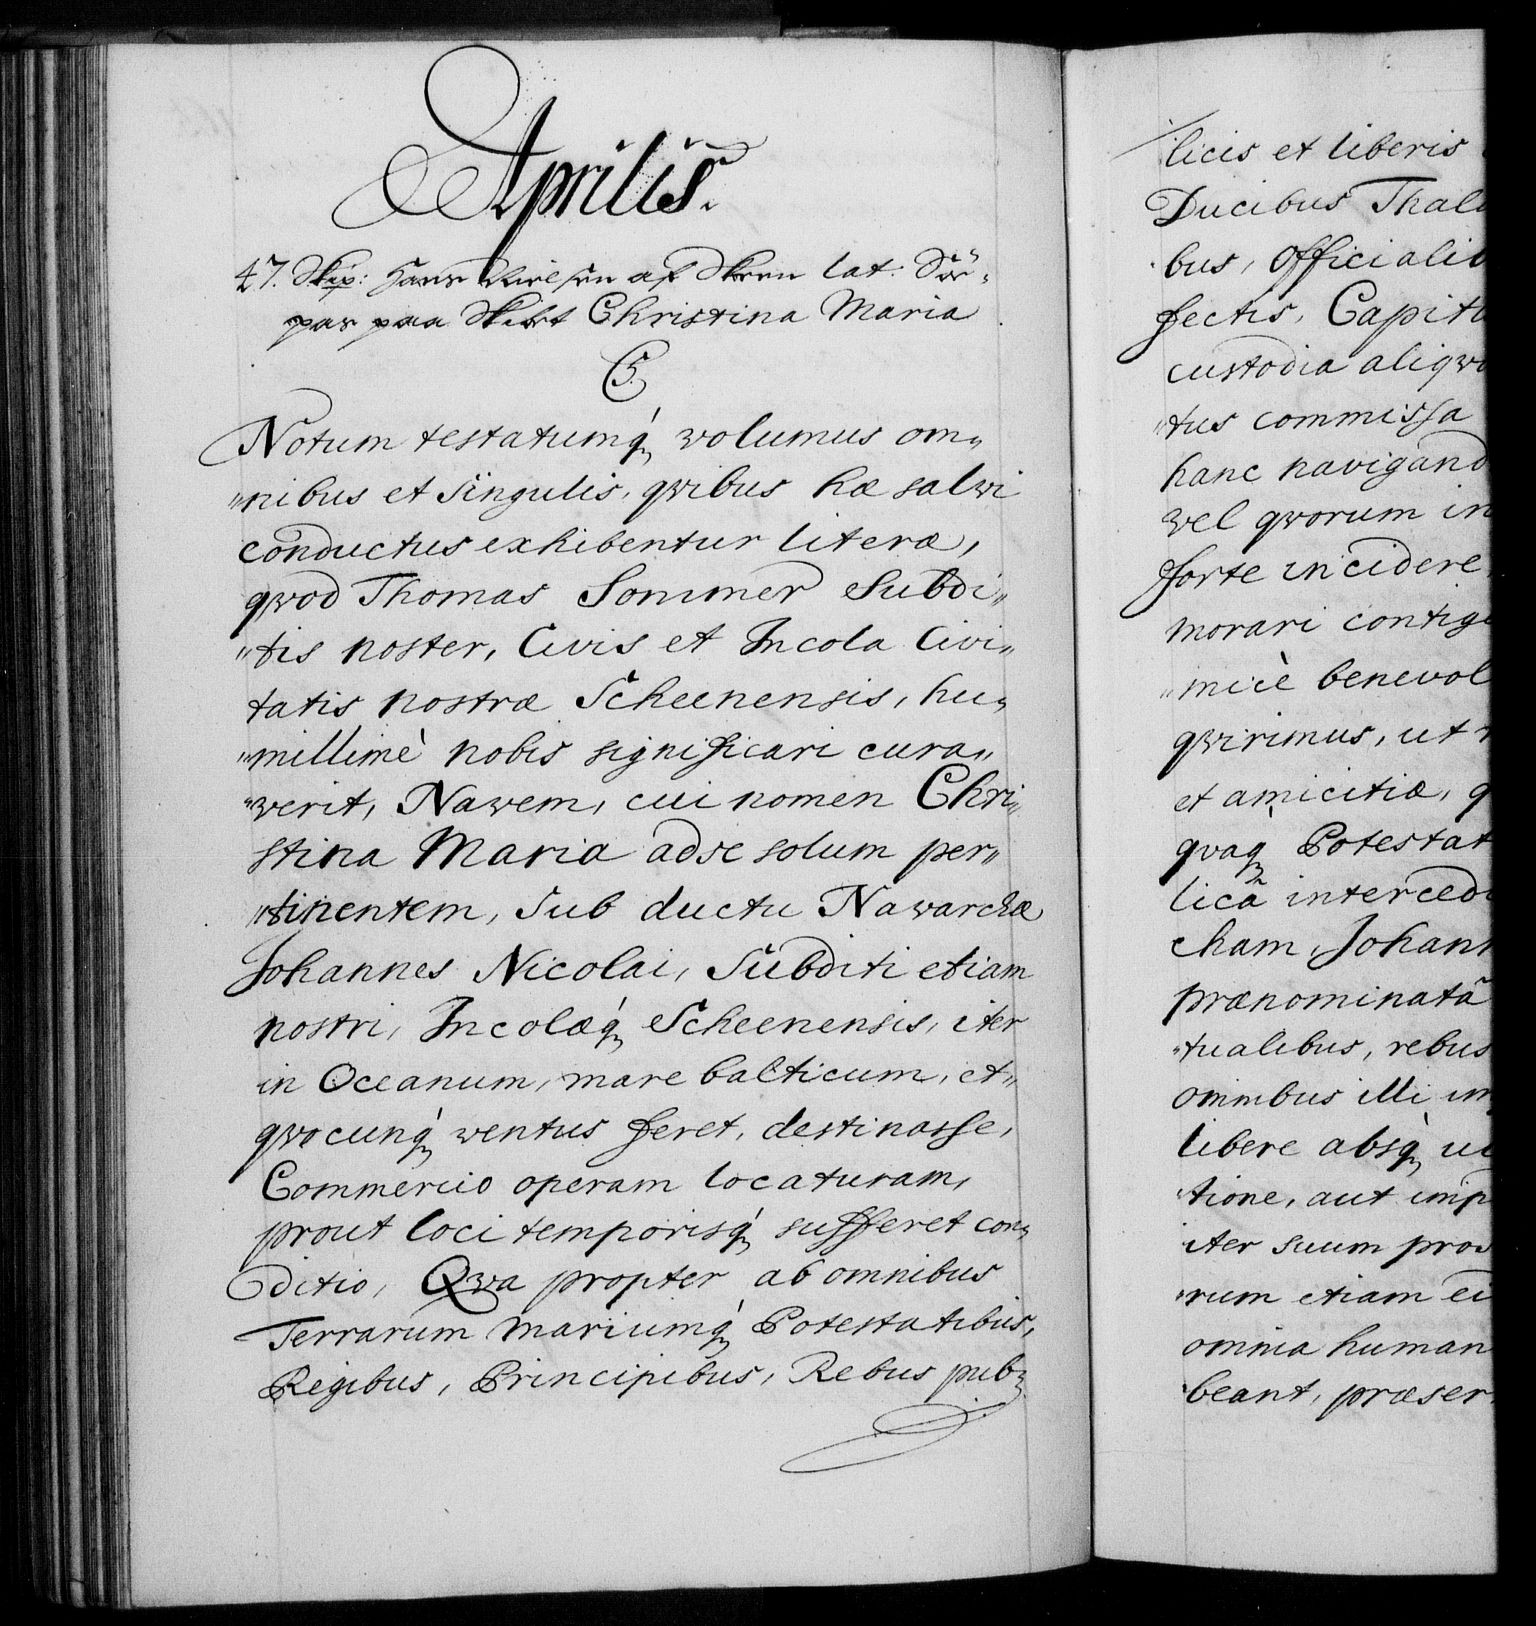 Aprilis.
47. Skip: Hans Nielsen af Skeen lat. Söe-
pas paa Skibet Christina Maria
C5.
Notum testatumq́ volumus om„
„nibus et singulis, qvibus hæ salvi
conductus exhibentur literæ,
qvod Thomas Sommer Subdi„
„tis noster, Civis et Incola Civi„
tatis nostræ Scheenensis, hu„
„millimè nobis significari cura„
„verit, Navem, cui nomen Chri„
stina Maria ad se solum per„
„tinentem, sub ductu Navarchæ
Johannes Nicolai, Subditi etiam
nostri, Incolæq́ Scheenensis, iter
in Oceanum, mare balticum, et„
qvocunq́ ventus feret, destinasse,
Commercio operam locaturam,
prout loci temporisq́ sufferet con„
ditio, Qva propter ab omnibus
Terrarum mariumq́ Potestatibus,
Regibus, Principibus, Rebus pub„
licis et liberis
Ducibus Thal
bus, Officialib
fectis, Capit
custodia aliqv
„tus commissa
hanc navigand
vel qvorum in
forte incidere
morari contig
„micè benevol
qvirimus, ut
et amicitiæ, q
qvaq́ Potestat
licã interced
cham, Johann
prænominatã
„tualibus, rebus
omnibus illi im
libere absq́ u
tione, aut imp
iter suum pro
„rum etiam ei
omnia human
beant, præser